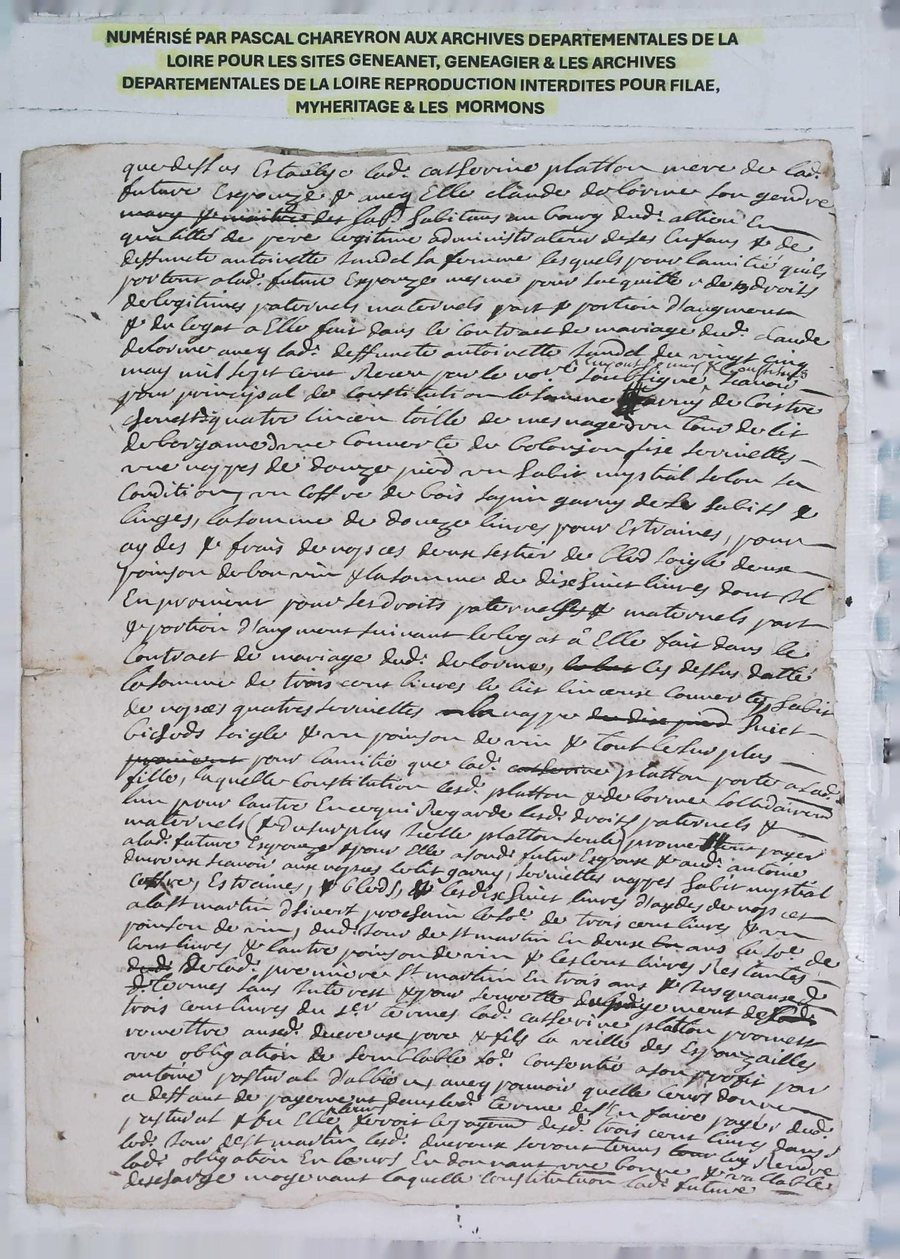 NUMÉRISÉ PAR PASCAL CHAREYRON AUX ARCHIVES DEPARTEMENTALES DE LA
LOIRE POUR LES SITES GENEANET, GENEAGIER & LES ARCHIVES
DEPARTEMENTALES DE LA LOIRE REPRODUCTION INTERDITES POUR FILAE,
MYHERITAGE & LES MORMONS
que dessus Establye lad. catherine platton mere de lad.
future Espouze & aueq Elle claude delorme son gendre
des habitans au bourg dud. En
qualitté de pere legitime administrateur de ses Enfans & de
deffuncte antoinette sa femme lesquels pour lamitié quils
portent a lad. future Espouze mesme pour de droits
de legitimes paternels maternels part & portion d'augment
& du legat a Elle fait dans le contract de mariage dud. claude
delorme aueq lad. deffuncte antoinette du vingt cinq
may mil sept cent Receu par le no.re soubsigné scavoir
pour principal de constitution garny de
quatre linceu toille de mesnage un tour de lit
de bergame une couverte de six serviettes
une nappe de douze pied un habit nuptial selon sa
condition, un coffre de bois sapin garny de ses habits &
linges, la somme de douze livres pour Estraines, pour
aydes & frais de nopces deux sestier de bled soigle deux
poinson de bon vin & la somme de dixhuict livres dont Il
En provient pour ses droits paternels & maternels part
& portion d'augment suivant le legat a Elle fait dans le
contract de mariage dud. delorme, cy dessus datté
la somme de trois cent livres le lict linceux couverte habit
de nopces quatre serviettes nappe huict
bichods soigle & un poinson de vin & tout le surplus
pour lamitié que lad. platton porte a sad.
fille, laquelle constitution lesd. platton & delorme sollidairem.
lun pour lautre En ce qui Regarde lesd. droits paternels &
maternels (& du surplus lad. platton seule) promettent payer
a lad. future Espouze & pour Elle a sond. futur Espoux & aud. antoine
duereux scavoir aux nopces le lit garny, serviettes nappes habit nuptial
coffre, Estraines, & bleds, & lesd. dixhuict livres d'aydes de nopces
a la st martin d'hivert prochain la so.e de trois cent livres & un
poinson de vin, dud. jour de st martin En deux ans la so.e de
cent livres & lautre poinson de vin & les cent livres Restantes
de lad. premiere st martin En trois ans & jusquausd.
termes sans Interest & pour seurette du payement de
trois cent livres du 1er termes lad. catherine platton promet
remettre ausd. duereux pere & fils la veille des Espouzailles
une obligation de semblable so.e consentie a son profit par
antoine pastural d'albieu aueq pouvoir quelle leurs donne
a deffaut de payement dans led. terme de s'En faire payer dud.
pastural & ou Elle feroit le payem.t desd. trois cent livres dans
led. jour de st martin lesd. duereux seront tenus luy Rendre
lad. obligation En leurs En donnant une bonne & vallable
descharge moyenant laquelle constitution lad. future